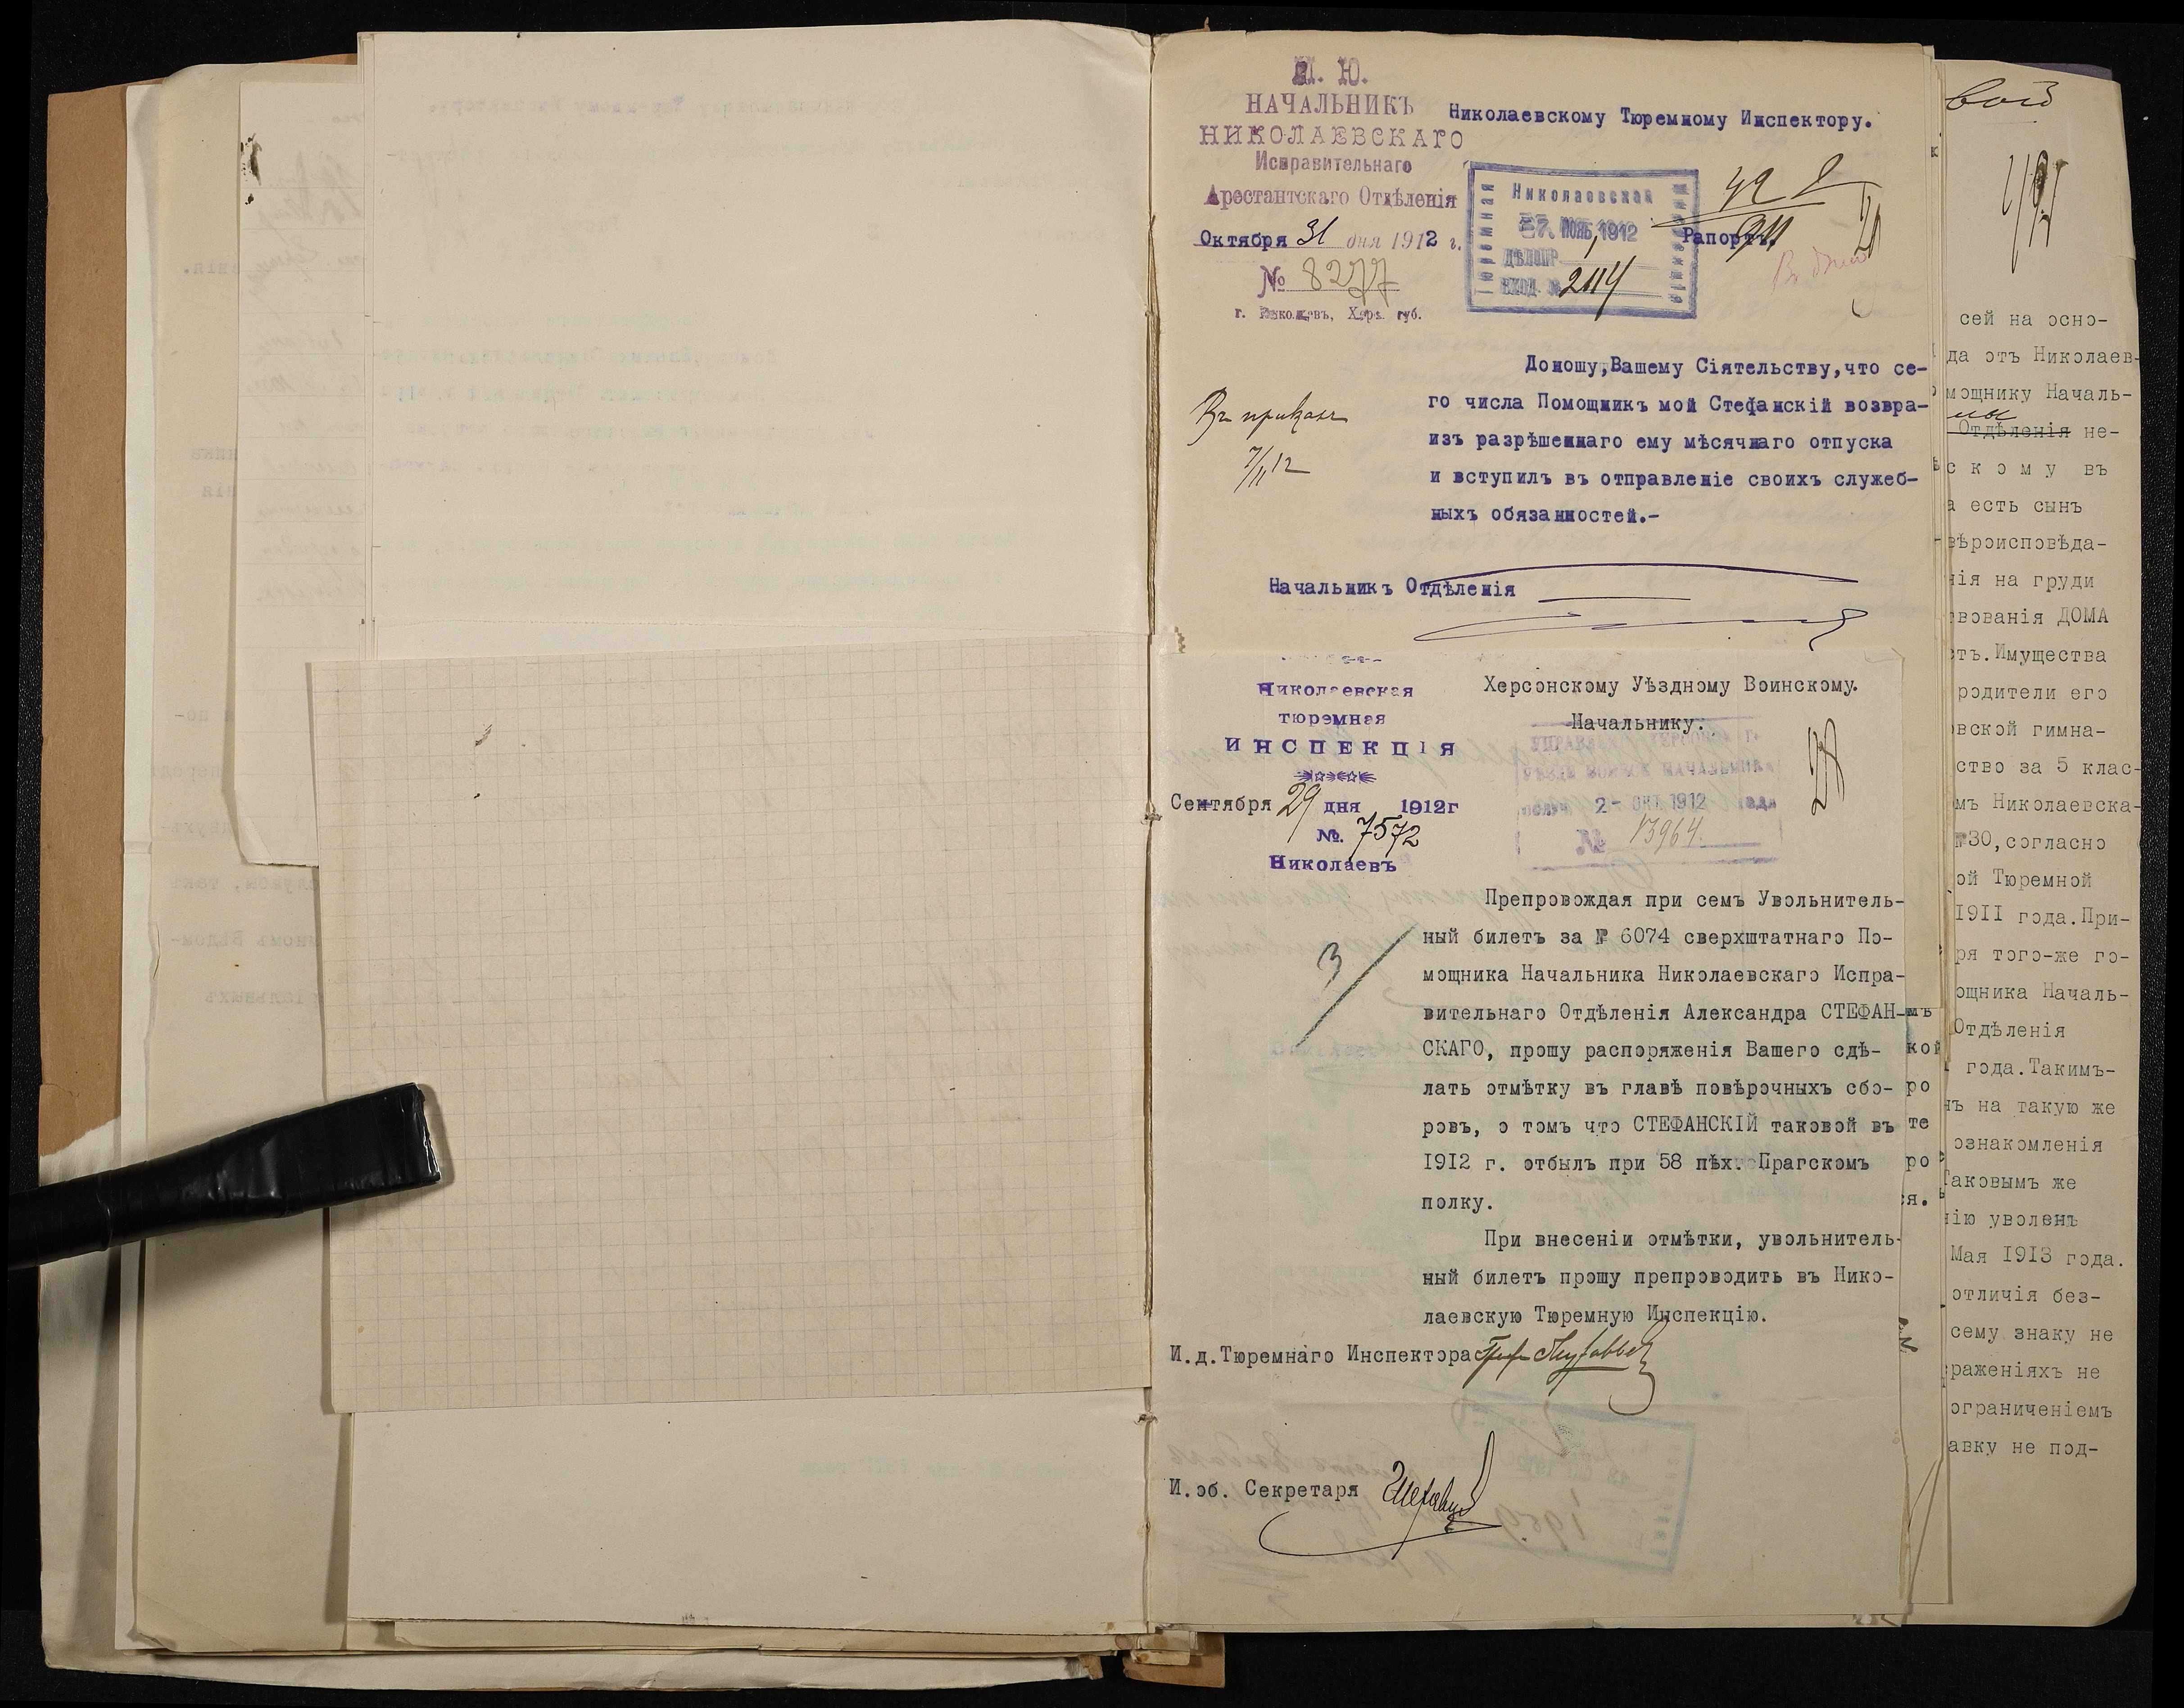 М. Ю.
НАЧАЛЬНИКЪ
НИКОЛАЕВСКАГО
Исправительнаго
Арестантскаго Отдѣленія
Октября 31 дня 1912 г.
№ 8277
г. Николаевъ, Хер. губ.
Николаевскому Тюремному Инспектору.
Николаевская
Тюремная
7. НОЯБ. 1912
ВХОД. № 2114
Рапортъ.
Доношу, Вашему Сіятельству, что се-
го числа Помощникъ мой Стефанскій возвра-
изъ разрѣшеннаго ему мѣсячнаго отпуска
и вступилъ въ отправленіе своихъ служеб-
ныхъ обязанностей.-
Въ приказъ
7/11 12
Начальникъ Отдѣленія
Николаевская
тюремная
ИНСПЕКЦІЯ
Сентября 29 дня 1912г
№. 7572
Николаевъ
Херсонскому Уѣздному Воинскому.
Начальнику.
2- ОКТ 1912 года
№ 13964.
3
Препровождая при семъ Увольнитель-
ный билетъ за № 6074 сверхштатнаго По-
мощника Начальника Николаевскаго Испра-
вительнаго Отдѣленія Александра СТЕФАН-
СКАГО, прошу распоряженія Вашего сдѣ-
лать отмѣтку въ главѣ повѣрочныхъ сбо-
ровъ, о томъ что СТЕФАНСКІЙ таковой въ
1912 г. отбылъ при 58 пѣх. Прагскомъ
полку.
При внесеніи отмѣтки, увольнитель-
ный билетъ прошу препроводить въ Нико-
лаевскую Тюремную Инспекцію.
И.д.Тюремнаго Инспектора
И.об. Секретаря
сей на осно-
да отъ Николаев-
мощнику Началь-
Отдѣленія не-
скому въ
а есть сынъ
вѣроисповѣда-
нія на груди
твованія ДОМА
сть.Имущества
родители его
овской гимна-
ство за 5 клас-
мъ Николаевска-
№30,согласно
ой Тюремной
1911 года.При-
ря того-же го-
ощника Началь-
Отдѣленія
года.Такимъ-
нъ на такую же
ознакомленія
Таковымъ же
нію уволенъ
Мая 1913 года.
отличія без-
сему знаку не
раженіяхъ не
ограниченіемъ
авку не под-